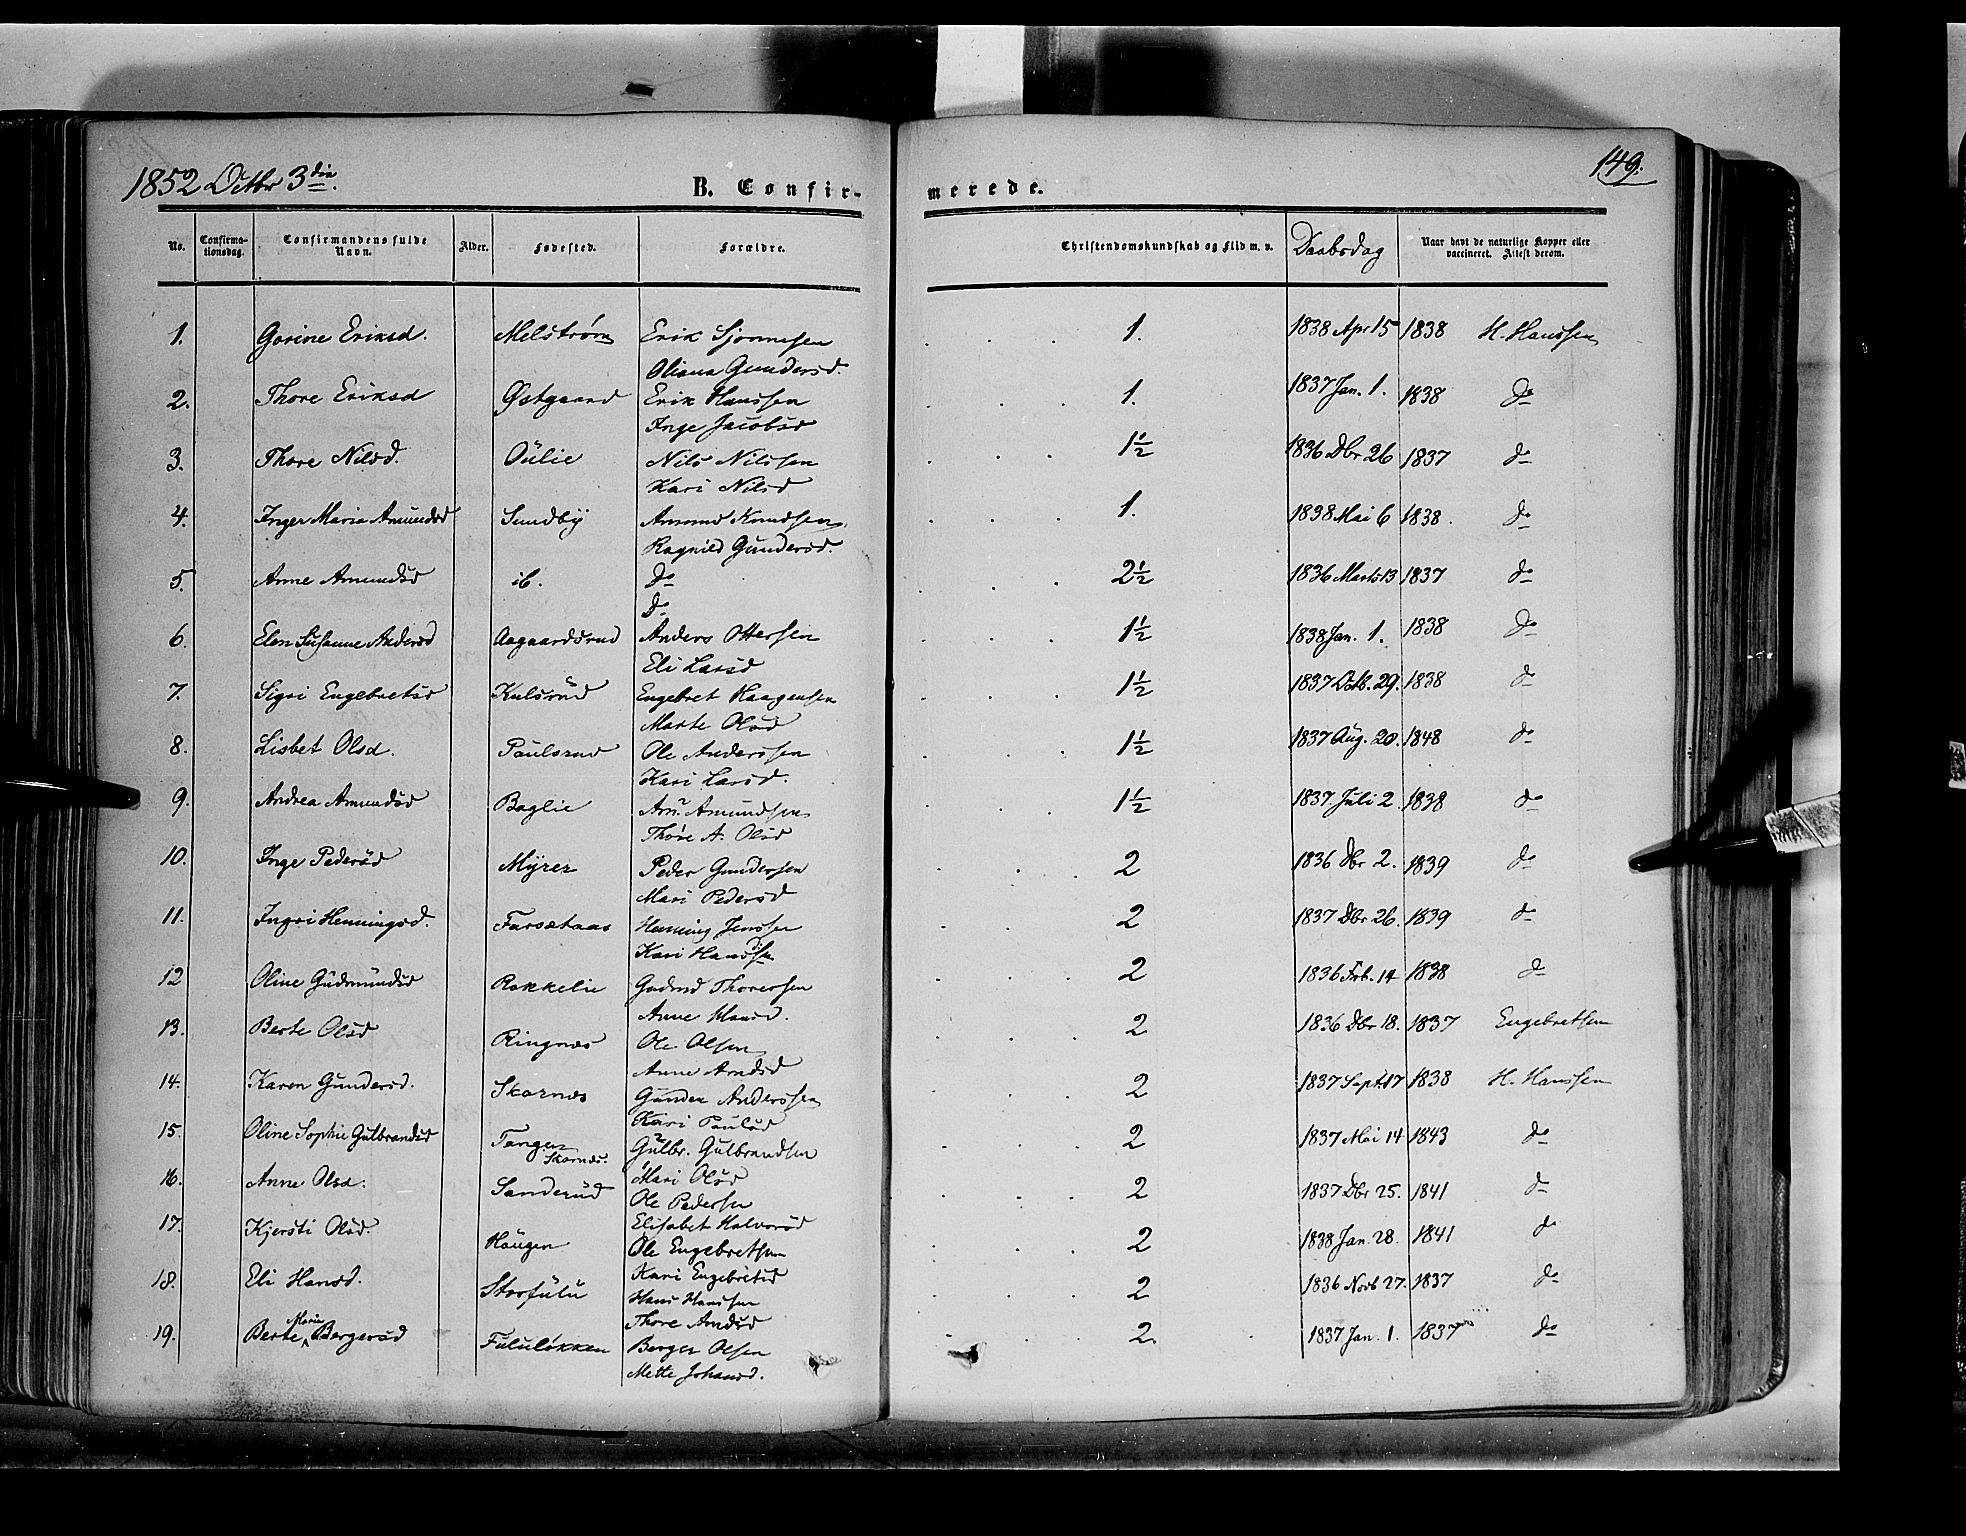 1852 Octbr 3die.
B. Confir-
merede.
149.
No. Confirma-tionsdag. Confirmandens fulde Navn. Alder. Fødested. Forældre. Christendomskundskab og Flid m. v. Daabsdag Naar havt de naturlige Kopper eller vaccineret. Attest derom.
1. Gorine Eriksd. Melstrøm Erik Sjønnesen 1. 1838 Apr 15 1838 H. Hanssen
Oliana Gundersd.
2. Thore Eriksd Østgaard Erik Hanssen 1. 1837 Jan. 1. 1838 do
Inge Jacobsd
3. Thore Nilsd. Oulie Nils Nilssen 1½ 1836 Dbr 26 1837 do
Kari Nilsd
4. Inger Maria Amundsd Sundby Amund Knudsen 1. 1838 Mai 6 1838. do
Ragnild Gundersd.
5. Anne Amundsd ib. do 2½ 1836 Marts 13 1837 do
do
6. Elen Susanne Andersd Aagaardsrud Anders Ottersen 1½ 1838 Jan. 1. 1838 do
Eli Larsd
7. Sigri Engebretsd Kulsrud Engebret Haagensen 1½ 1837 Octb. 29. 1838 do
Marte Olsd
8. Lisbet Olsd. Paulsrud Ole Anderssen 1½ 1837 Aug. 20. 1848 do
Kari Larsd.
9. Andrea Amundsd Baglie Am. Amundsen 1½ 1837 Juli 2. 1838 do
Thore A. Olsd
10. Inge Pedersd Myrer Peder Gundersen 2 1836 Dbr 2. 1839 do
Mari Pedersd
11. Ingri Henningsd. Farsetaas Henning Jenssen 2 1837 Dbr 26. 1839 do
Kari Hans
12 Oline Gudmundsd Rokkelie Gudmd Thoresen 2 1836 Feb. 14 1838 do
Anne Hansd.
13. Berte Olsd Ringnæs Ole Olsen 2 1836 Dbr 18. 1837 Engebretsen
Anne Arndsd
14. Karen Gundersd. Skarnæs Gunder Anderssen 2 1837 Sept. 17 1838 H. Hanssen
Kari Paulsd
15. Oline Sophie Gulbrandsd Tangen Skarnæs. Gulbr. Gulbrandsen 2 1837 Mai 14 1843 do
Mari Olsd
16. Anne Olsd. Sanderud Ole Pedersen 2 1837 Dbr 25. 1841 do
Elisabet Halvorsd
17. Kjersti Olsd. Haugen Ole Engebretsen 2 1838 Jan. 28. 1841 do
Kari Engebretsd
18. Eli Hansd. Storfulu Hans Hanssen 2 1836 Novb 27. 1837 do
Thore Arndsd
19. Berte Marie Borgersd Fululøkken Borger Olsen 2. 1837 Jan. 1. 1837 do
Mette Johansd.